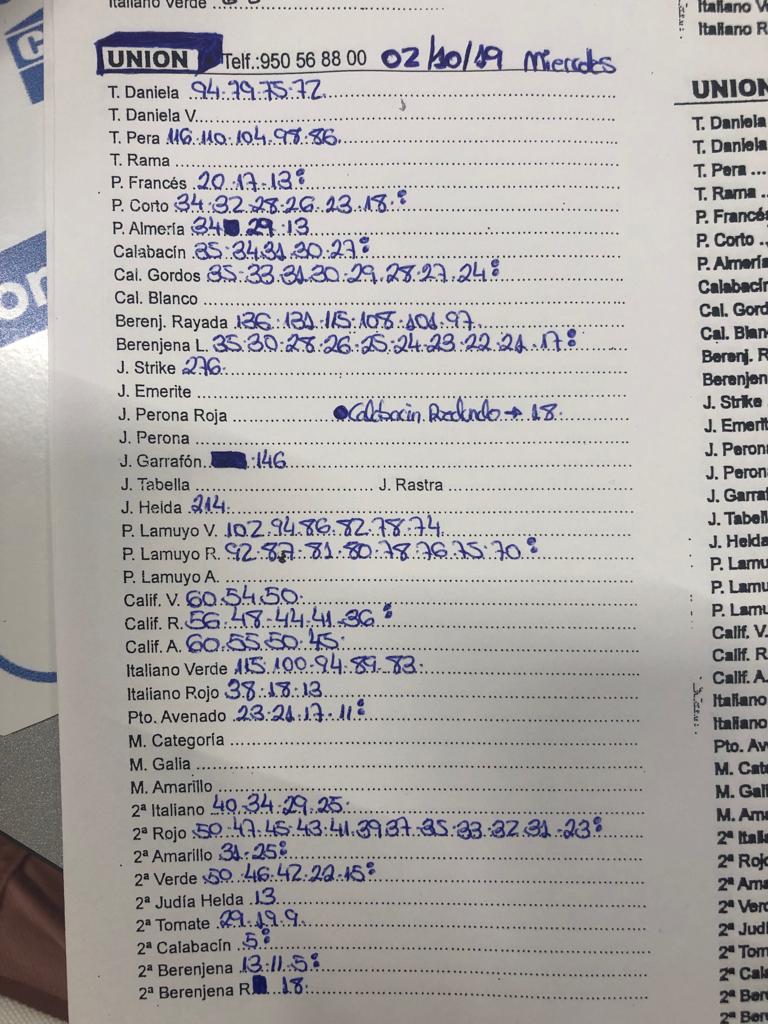 Italiano Verde
UNION Telf.:950 56 88 00 02/10/19 Miercoles
T. Daniela 94.79.75.72.
T. Daniela V.
T. Pera 116.110.104.98.86.
T. Rama
P. Francés 20.17.13:
P. Corto 34.32.28.26.23.18.:
P. Almería 34 29.13
Calabacín 35.34.31.30.27:
Cal. Gordos 35.33.31.30.29.28.27.24:
Cal. Blanco
Berenj. Rayada 136.131.115.108.101.97.
Berenjena L. 35.30.28.26.25.24.23.22.21.17:
J. Strike 276.
J. Emerite
J. Perona Roja Calabacin Redondo → 18.
J. Perona
J. Garrafón :146
J. Tabella J. Rastra
J. Helda 214.
P. Lamuyo V. 102.94.86.82.78.74.
P. Lamuyo R. 92.87.81.80.78.76.75.70:
P. Lamuyo A.
Calif. V. 60.54.50.
Calif. R. 56.48.44.41.36:
Calif. A. 60.55.50.45.
Italiano Verde 115.100.94.89.83.
Italiano Rojo 38.18.13
Pto. Avenado 23.21.17.11:
M. Categoría
M. Galia
M. Amarillo
2ª Italiano 40.34.29.25.
2ª Rojo 50.47.45.43.41.39.37.35.33.32.31.23:
2ª Amarillo 31.25:
2ª Verde 50.46.42.22.15:
2ª Judía Helda 13
2ª Tomate 29.19.9.
2ª Calabacín 5:
2ª Berenjena 13.11.5:
2ª Berenjena R 18.
Italiano R
UNION
T. Daniela
T. Daniela
T. Pera
T. Rama
P. Francés
P. Corto
P. Almería
Calabacín
Cal. Gord
Cal. Blan
Berenj. R
Berenjen
J. Strike
J. Emerit
J. Peron
J. Peron
J. Garraf
J. Tabell
J. Held
P. Lamu
P. Lamu
P. Lamu
Calif. V.
Calif. R
Calif. A.
Italiano
Italiano
Pto. Av
M. Cat
M. Gali
M. Ama
2ª Itali
2ª Rojo
2ª Ama
2ª Verd
2ª Judí
2ª Tom
2ª Cala
2ª Ber
2ª Ber